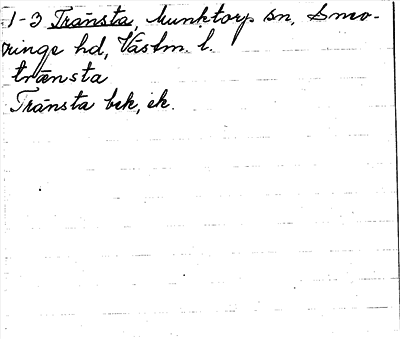 1-3 Transta, Munktorp sn, Snev-
ringe hd, Västm. l.
trænsta
Transta bek, ek.